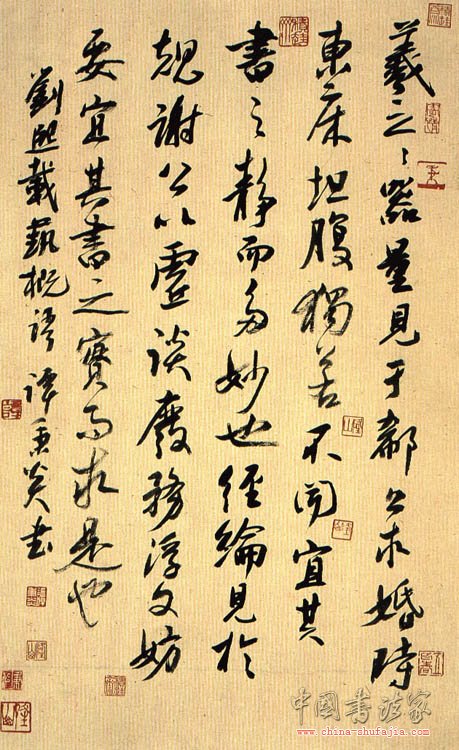 羲之々器量見于郗公求婚時
東床坦腹獨若不聞宜其
書之靜而多妙也經綸見於
規謝公以虛談廢務浮文妨
要宜其書之實而求是也
劉熙載藝概語譚秉炎書
中國書法家
www.china-shufajia.com